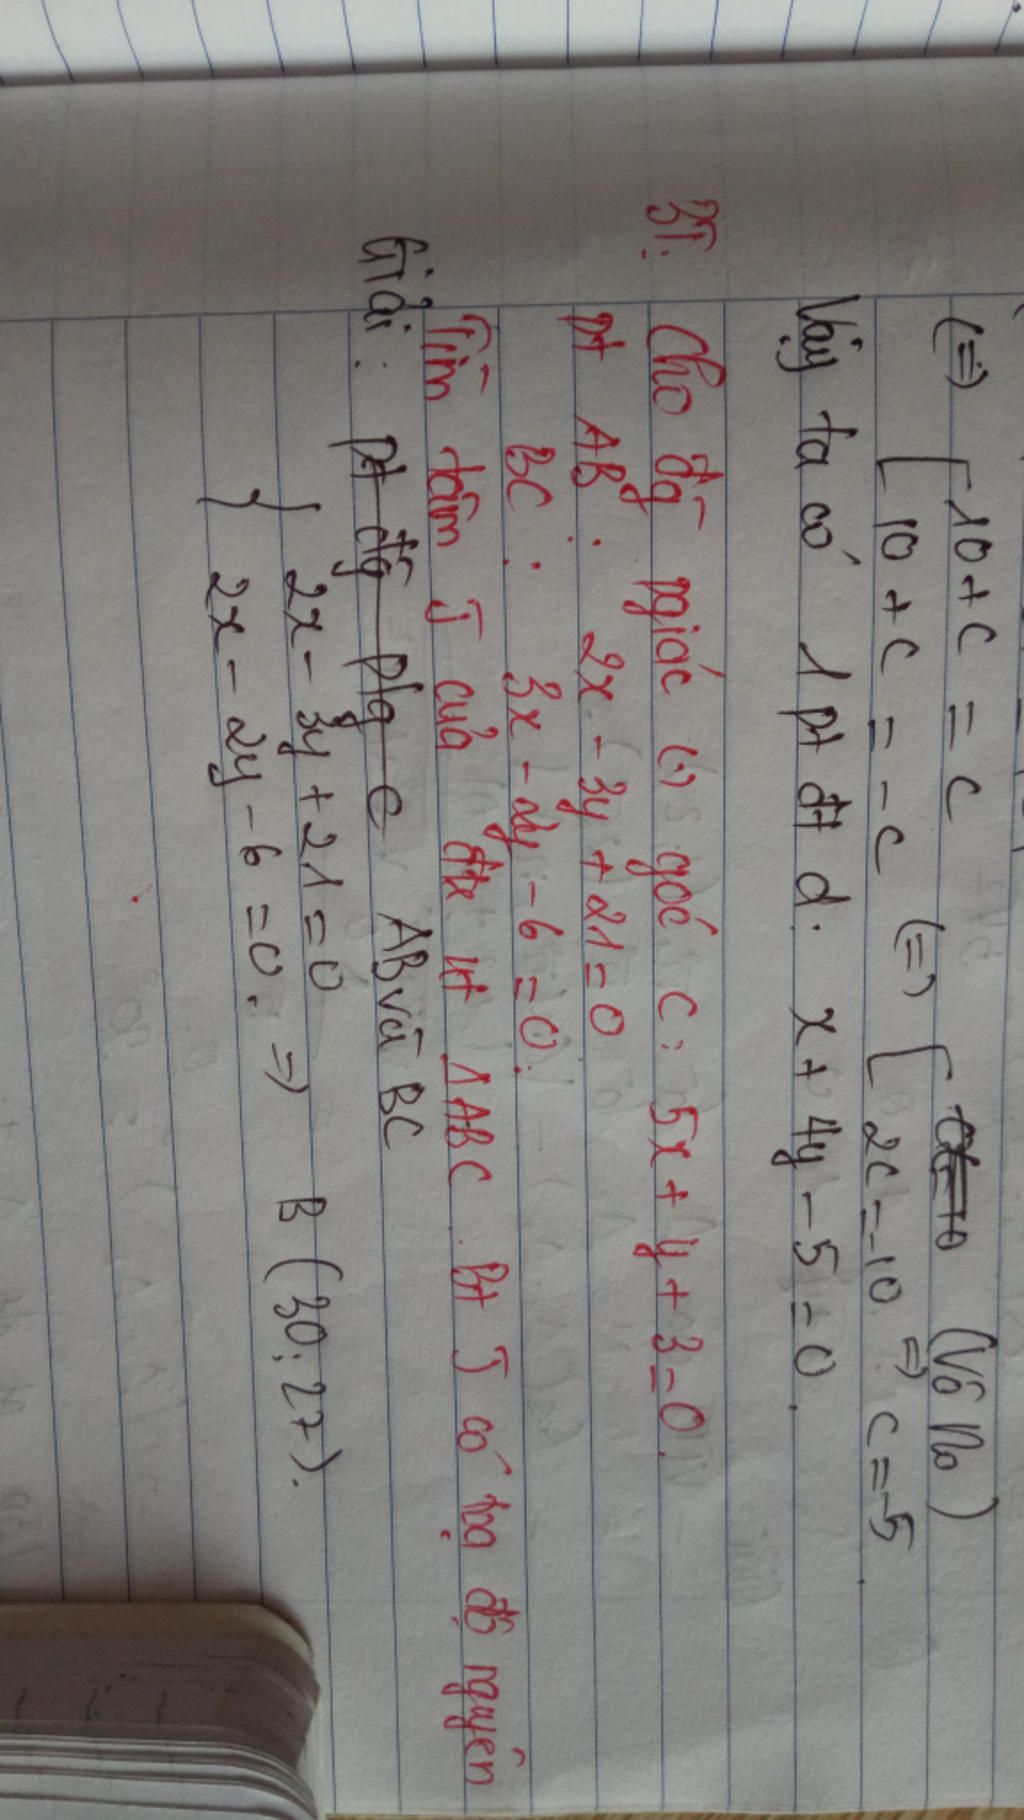 (=) [ 10 + C = C
[ 10 + C = -C (=) [ (Vô No)
[ 2C = -10 => C = -5
Vậy ta có 1 pt đt d: x + 4y - 5 = 0.
BT: Cho đg pgiác (s) góc C: 5x + y + 3 = 0.
pt AB: 2x - 3y + 21 = 0
BC: 3x - 2y - 6 = 0.
Tìm tâm J của đtr nt ΔABC. Bt J có toạ độ nguyên
Giải: pt đg plg C AB và BC
{ 2x - 3y + 21 = 0
{ 2x - 2y - 6 = 0. => B (30; 27).